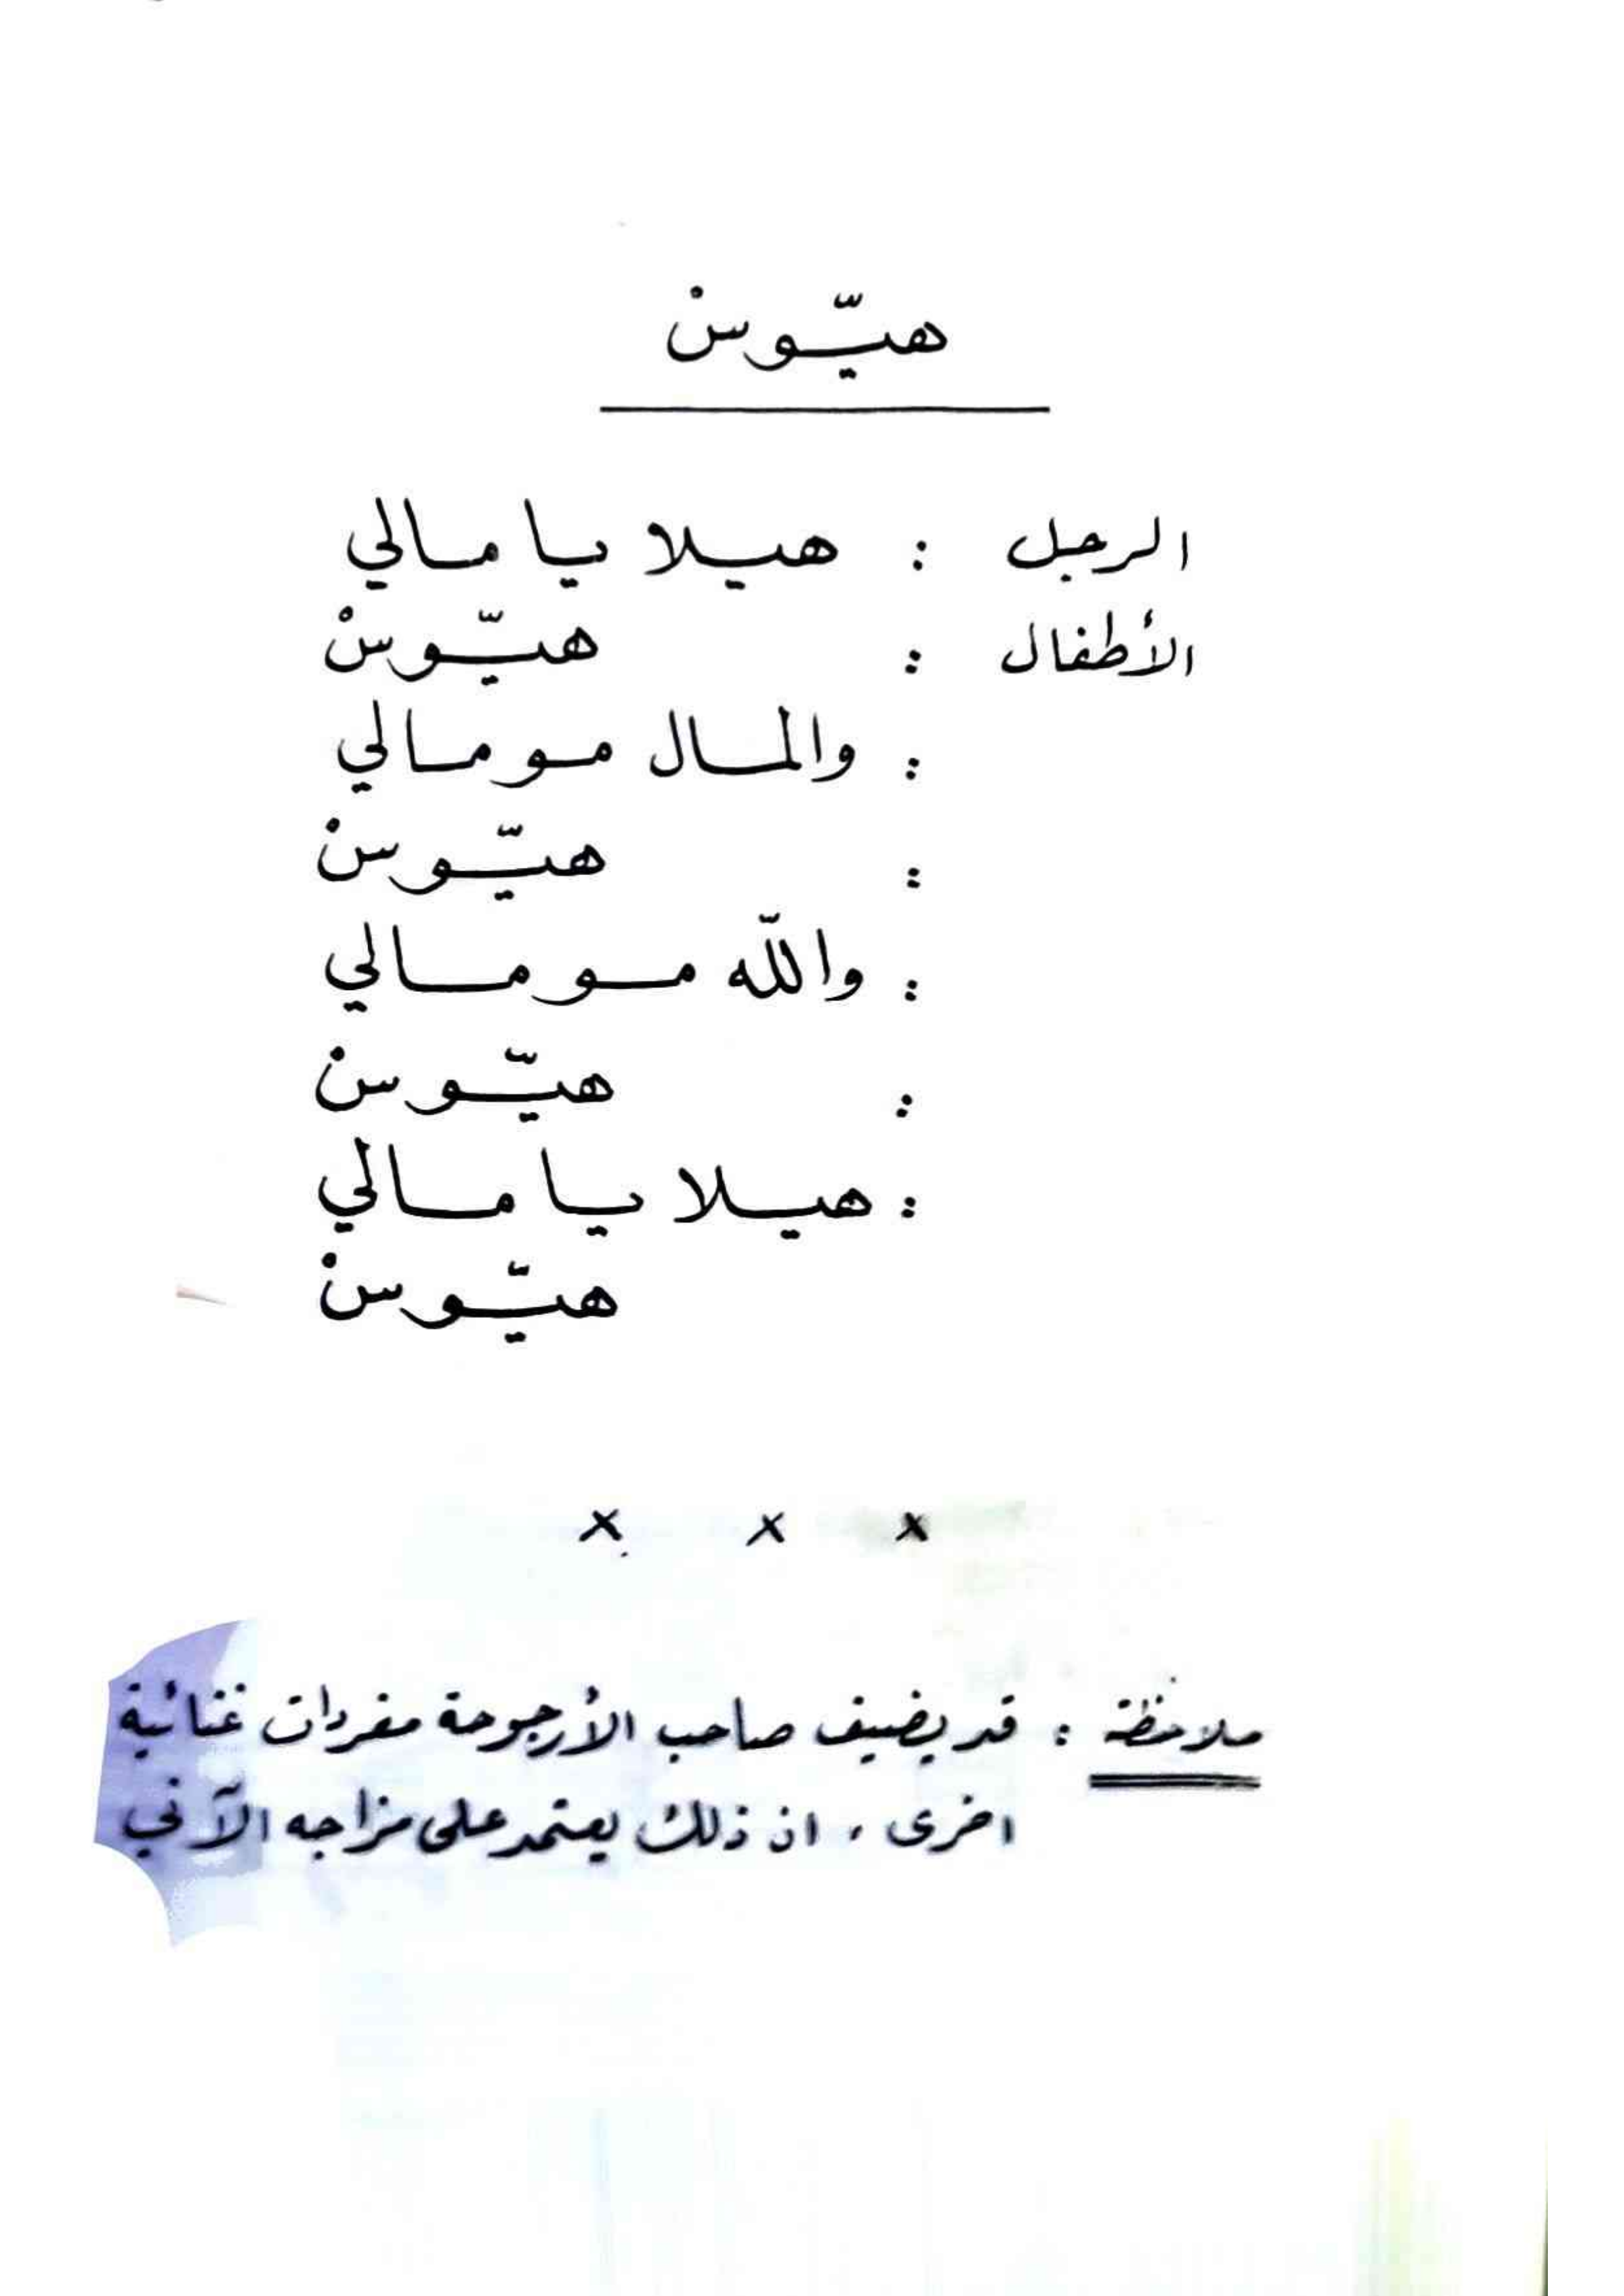 هيّوسْ
الرجل : هيلا يا مالي
الأطفال : هيّوسْ
: والمال مو مالي
: هيّوسْ
: والله مو مالي
: هيّوسْ
: هيلا يا مالي
هيّوسْ
× × ×
ملاحظة : قد يضيف صاحب الأرجوحة مفردات غنائية
اخرى ، ان ذلك يعتمد على مزاجه الآني